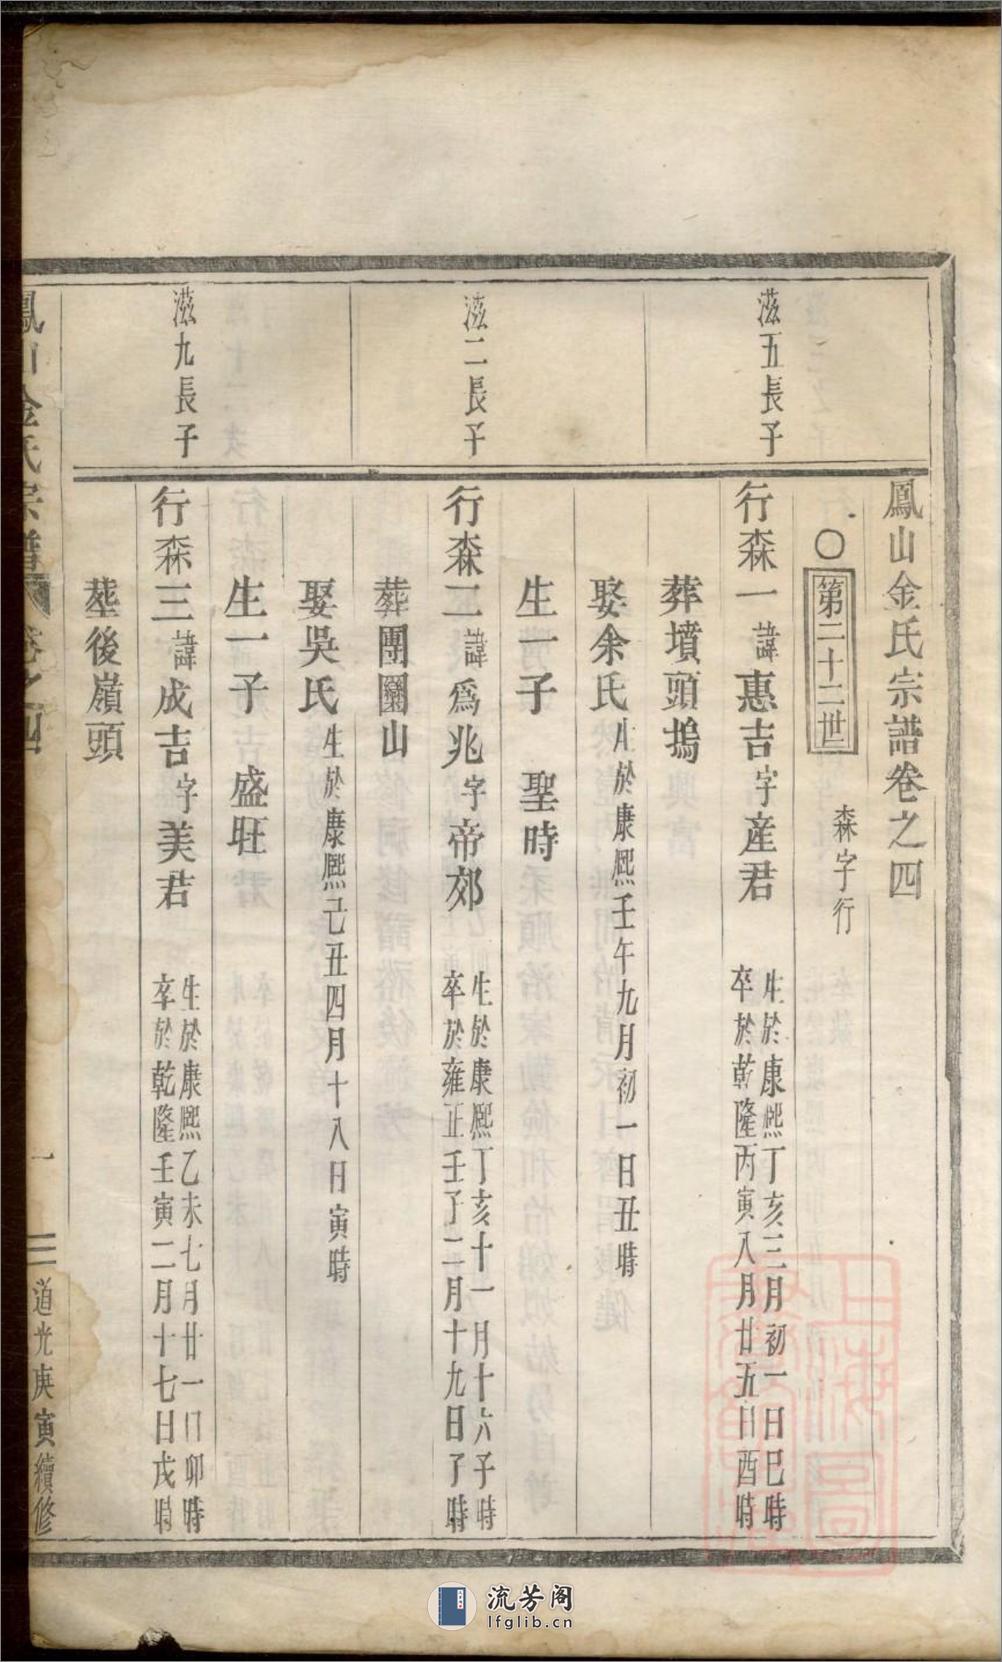 鳳山金氏宗譜卷之四
○第二十二世
森字行
滋五長子
行森一諱惠吉字産君
生於康熙丁亥三月初一日巳時
卒於乾隆丙寅八月廿五日酉時
葬墳頭塢
娶余氏生於康熙壬午九月初一日丑時
生一子 聖時
滋二長子
行森二諱為兆字帝郊
生於康熙丁亥十一月十六子時
卒於雍正壬子二月十九日子時
葬團圞山
娶吳氏生於康熙己丑四月十八日寅時
生一子 盛旺
滋九長子
行森三諱成吉字美君
生於康熙乙未七月廿一日卯時
卒於乾隆壬寅二月十七日戌時
塟後嶺頭
鳳山金氏宗譜
卷之四
一
道光庚寅續修
流芳阁
lfglib.cn